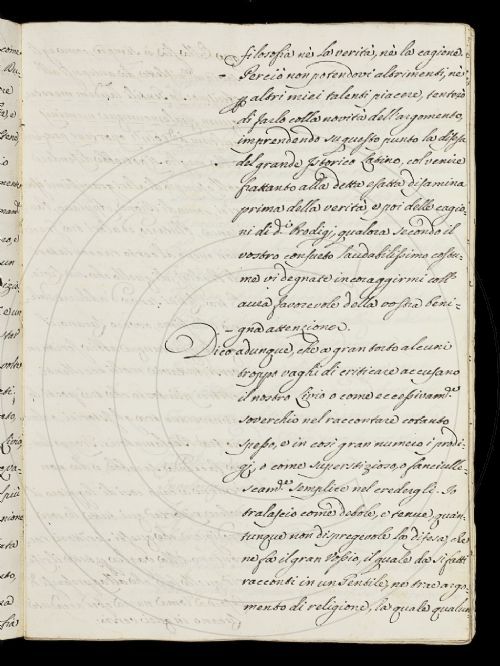 filosofia nè la verità, nè la cagione.
Perciò non potendovi altrimenti, nè
p altri miei talenti piacere, tenterò
di farlo colla novità dell'argomento,
imprendendo su questo punto la difesa
del grande Istorico Latino, col venire
frattanto alla detta esatta disamina
prima della verità e poi delle cagio-
ni di d.i Prodigj, qualora secondo il
vostro consueto laudabilissimo costu-
me vi degnate incoraggirmi coll'
aura favorevole della vostra beni-
gna attenzione.
Dico adunque, che a gran torto alcuni
troppo vaghi di criticare accusano
il nostro Livio o come eccessivam.te
soverchio nel raccontare cotanto
spesso, e in così gran numero i prodi-
gj, o come superstizioso, o fanciulle-
scam.te semplice nel credergli. Io
tralascio come debole, e tenue, quan-
tunque non dispregevole la difesa, che
ne fa il gran Vossio, il quale da sì fatti
racconti in un Gentile, ne trae argo-
mento di religione, la quale qualun